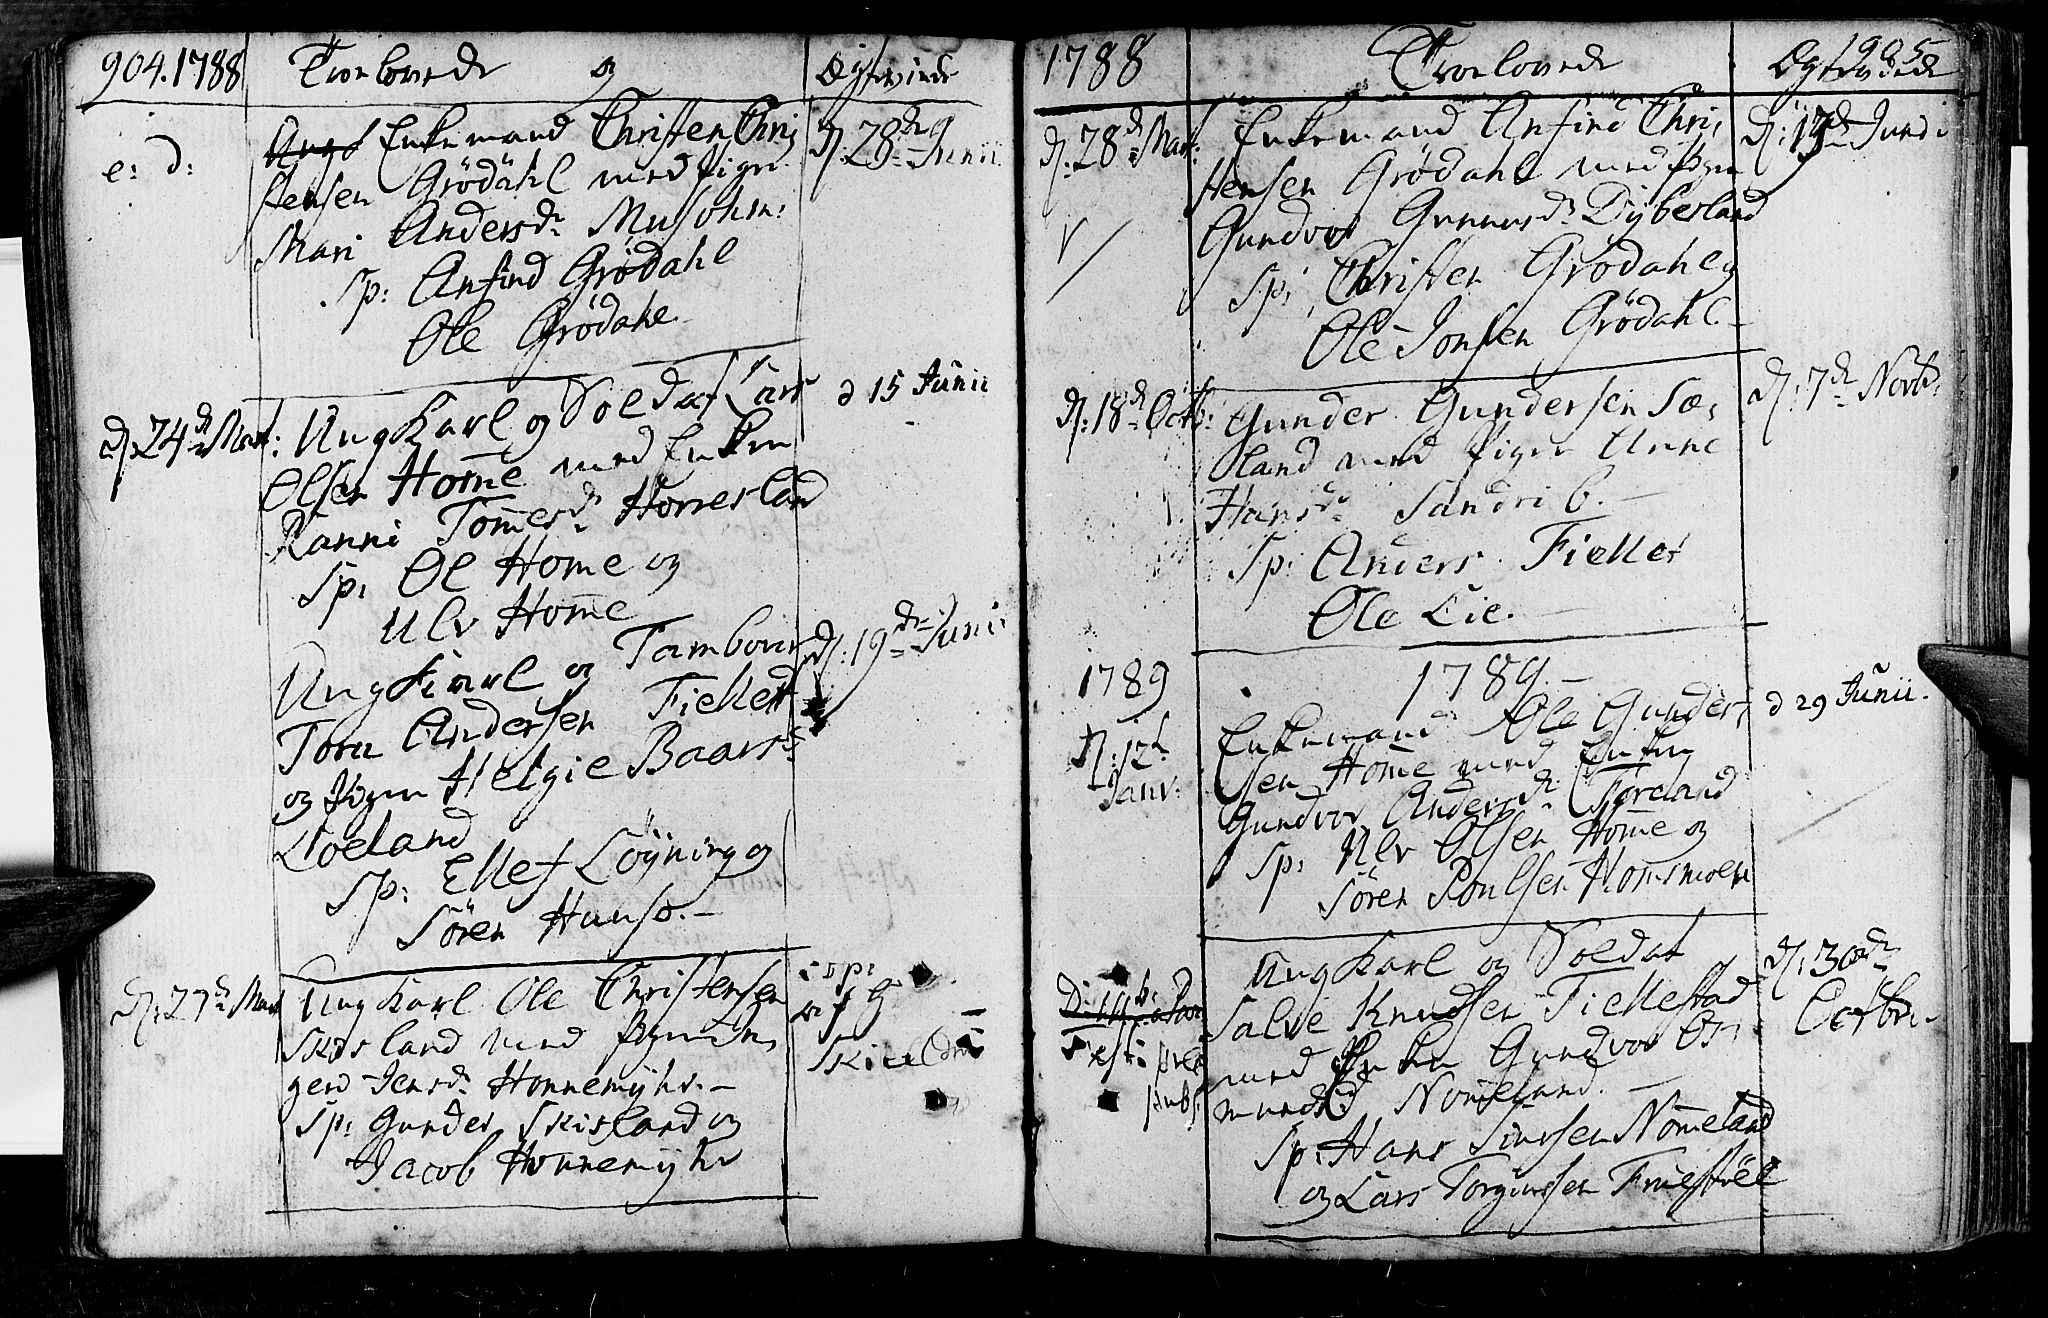 904. 1788 Troelovede og Ægteviede
e: d: Ungk Enkemand Christen Chri
stensen Grödahl med Pigen
Mari Andersdr
Sp: Anfind Grödahl
Ole Grödahl
d: 28de Junii
d: 24de Mart: Ungkarl og Soldat Lars
Olsen Home med Enken
Ranni Tomesdr Horresland
Sp: Ol Home og
Ulv Home
d 15 Junii
Ungkarl og Tambour
Tore Andersen Fiellet
og Pigen Helgie Baarsdr
Loeland
Sp: Ellef Löyning og
Sören Hunso.
d: 19de Junii
d: 27de Mart Ungkarl Ole Christensen
Skisland med Pigen In
gerd Jensdr Honnemyhr.
Sp: Gunder Skisland og
Jacob Honnemyhr
cop:
af H
1788 Troelovede Ægteviede 905
d: 28de Mart: Enkemand Anfind Chri
stensen Grödahl med Pigen
Gundvor Gunnersdr Dybesland
Sp: Christen Grödahl og
Ole Jonsen Grödahl.
d: 19de Junii
d: 18de Octb: Gunder Gundersen Sæ
land med Pigen Anne
Hansdr Sandrib.
Sp: Anders Fiellet
Ole Lie.
d: 7de Novb:
1789 1789.
d: 12te
Janv:
Enkemand Ole Gunder
sen Home med Enken
Gundvor Andersdr
Sp: Ulv Olsen Home og
Sören Poulsen Homsmoen
d 29 Junii.
Ungkarl og Soldat
Salve Knudsen Fiellestad
med Enken Gundvor As
mundsd Nomeland.
Sp: Hans Nomeland
og Lars Torgiussen
d: 30de
Octbr.